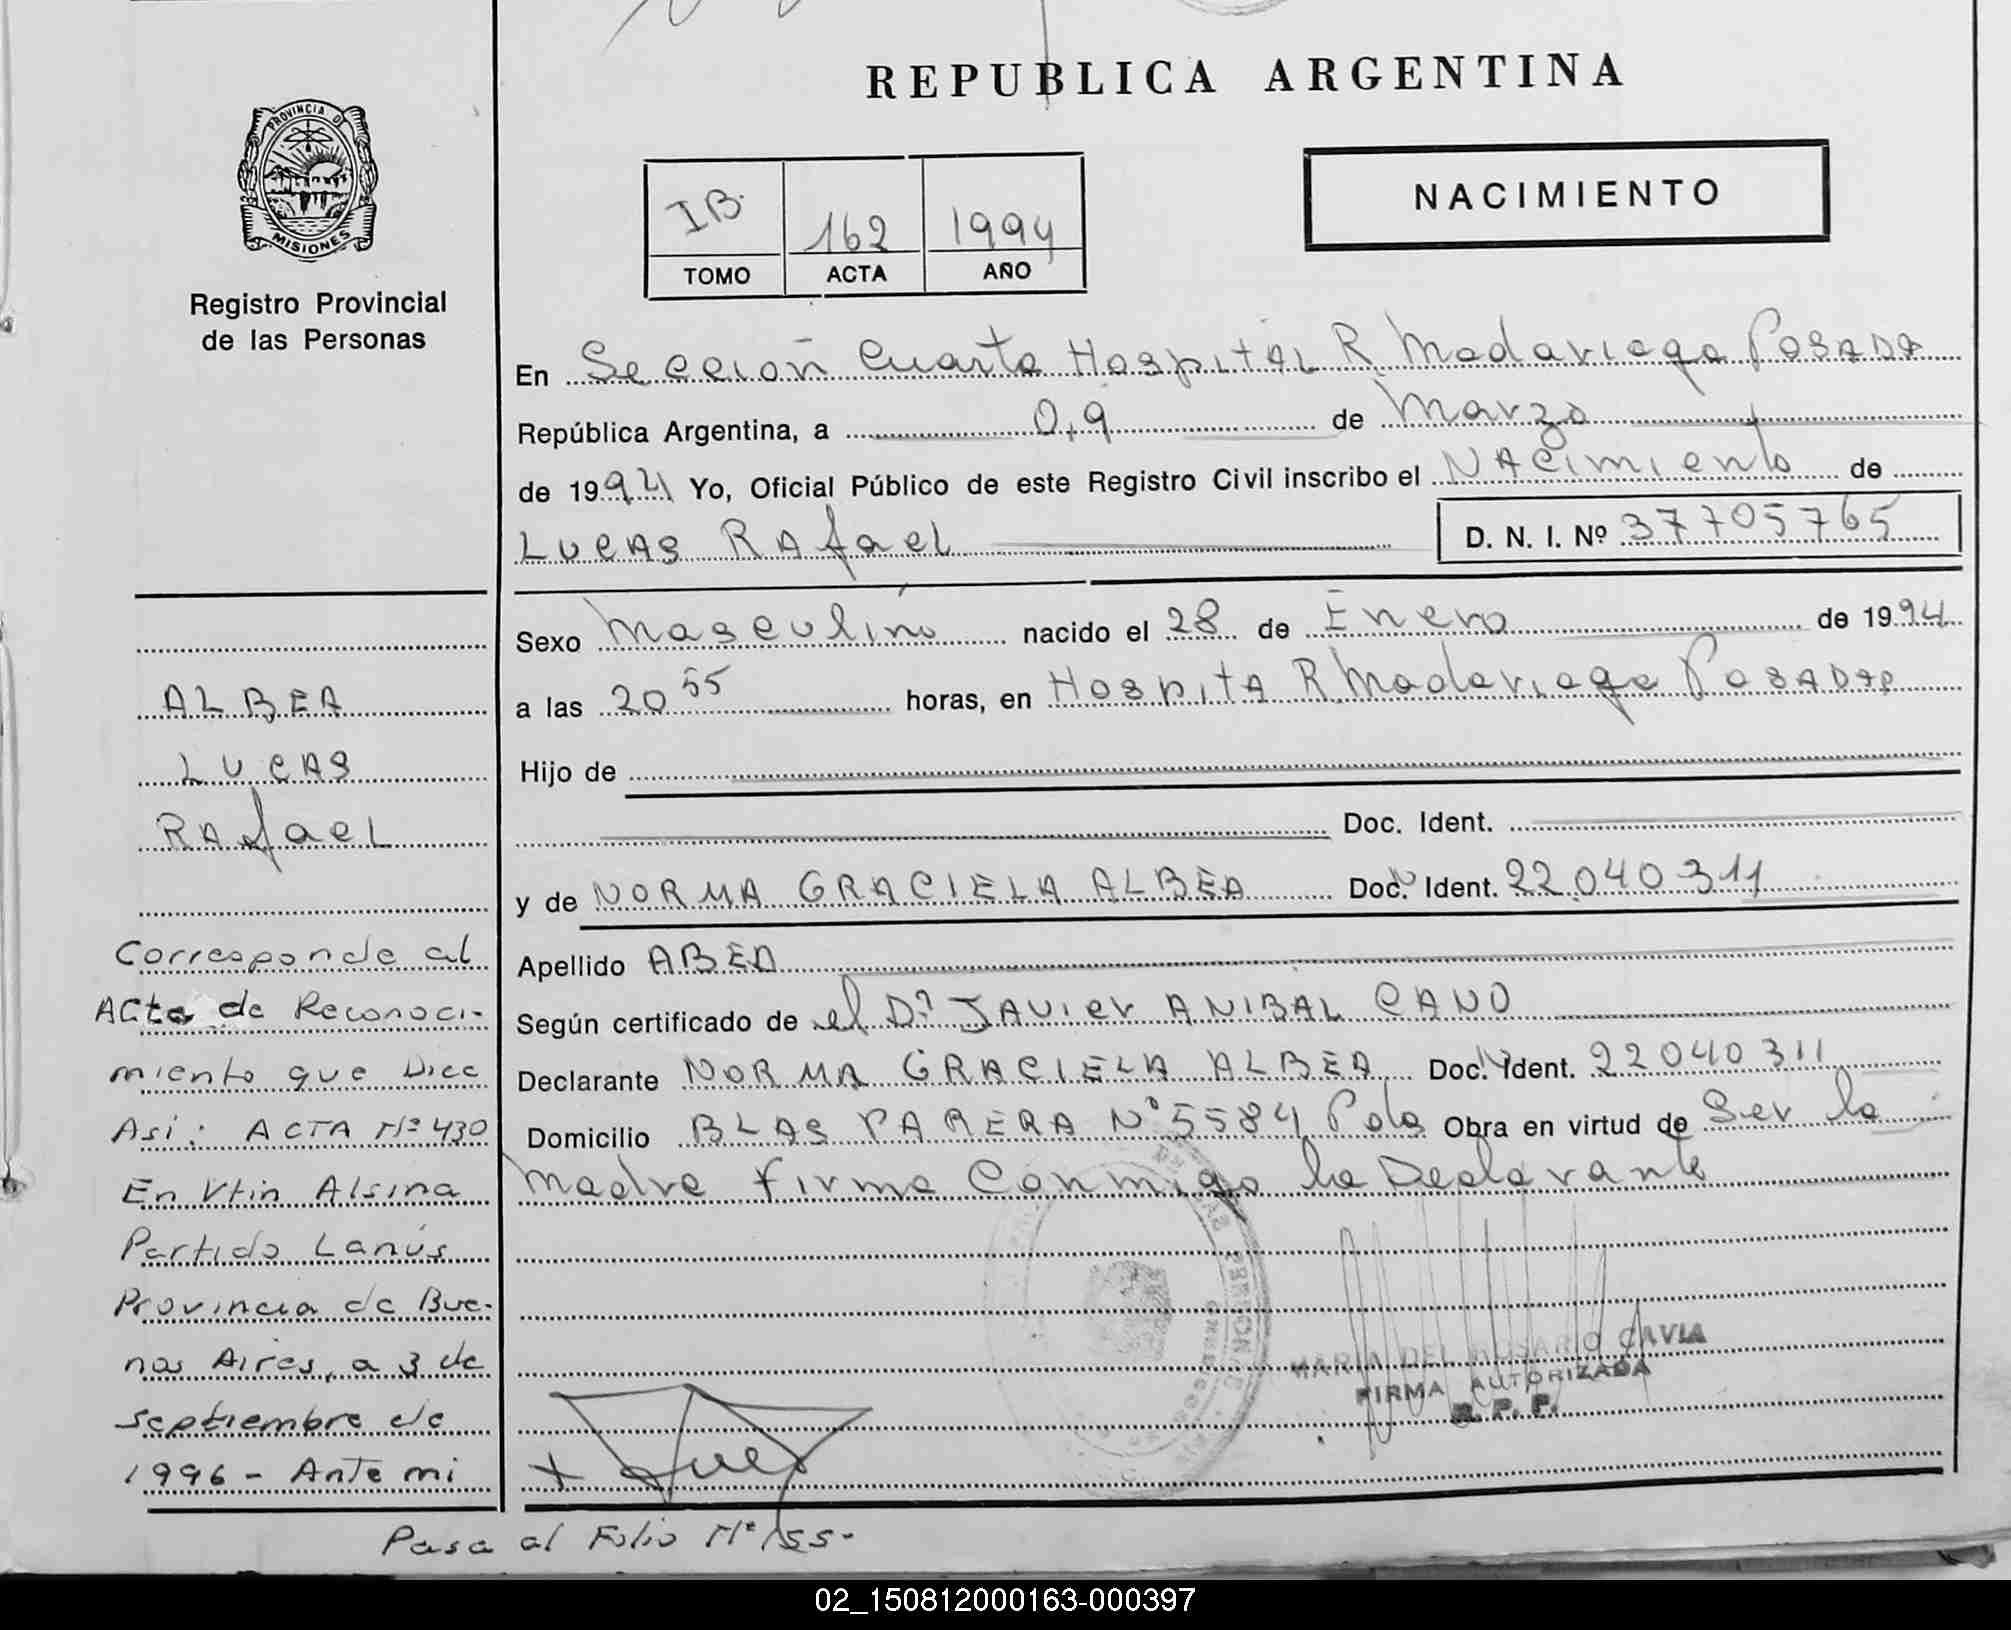 REPUBLICA ARGENTINA
PROVINCIA DE
MISIONES
Registro Provincial
de las Personas
IB. 162 1994
TOMO ACTA AÑO
NACIMIENTO
En Sección Cuarta Hospital R Madariaga Posada
República Argentina, a 09 de Marzo
de 1994 Yo, Oficial Público de este Registro Civil inscribo el NAcimiento de
LUCAS RAfael D. N. I. Nº 37705765
Sexo Masculino nacido el 28 de Enero de 1994
a las 20 55 horas, en HospitA R Madariaga Posadas
Hijo de
Doc. Ident.
y de NORMA GRACIELA ALBEA Doc. Ident. 22.040311
Apellido ABEA
Según certificado de el Dr JAVIER ANIBAL CANO
Declarante NORMA GRACIELA ALBEA Doc. Ident. 22040311
Domicilio BLAS PARERA Nº 5584 Pdas Obra en virtud de Ser la
Madre firma Conmigo la Declarante
MARIA DEL ROSARIO CAVIA
FIRMA AUTORIZADA
R. P. P.
ALBEA
LUCAS
RAfaeL
Corresponde al
ACta de Reconoci-
miento que Dice
Asi: ACTA Nº 430
En Vtin Alsina
Partido Lanús
Provincia de Bue-
nos Aires, a 3 de
septiembre de
1996 - Ante mi
Pasa al Folio Nº 155-
02_150812000163-000397